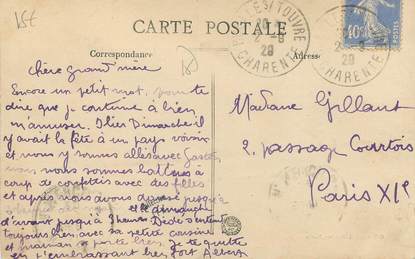 CARTE POSTALE
Correspondance
Adresse
CHARENTE
40c
chère grand'mère
Encore un petit mot, pour te
dire que je continue à bien
m'amuser. Hier Dimanche il
y avait la fête à un pays voisin
et nous y sommes allés avec
nous nous sommes battus à
coup de confettis avec des filles
et après nous avons dansé jusqu'à
et le dimanche
d'avant jusqu'à 3 heures Dédé s'entend
toujours bien avec sa petite cousine
et maman se porte bien. Je te quitte
en t'embrassant bien fort Albert
Madame Gillant
2. passage Courtois
Paris XIe